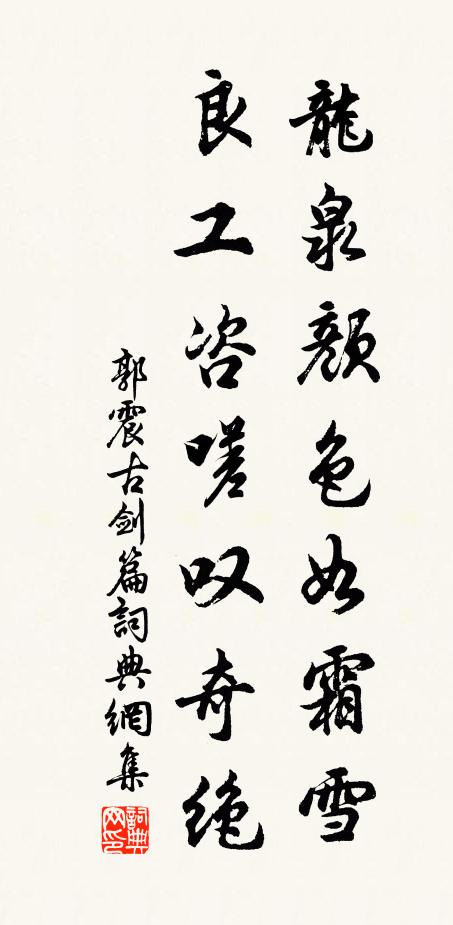 龍泉顏色如霜雪
良工咨嗟叹奇絶
郭震古劍篇詞典網集
詞典网印